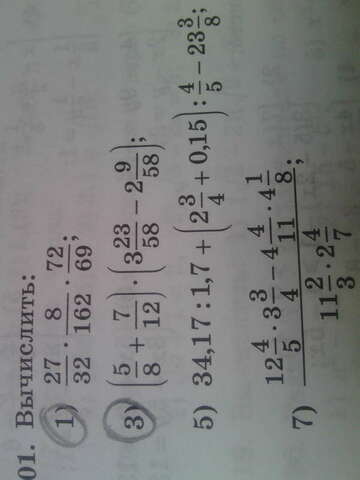 01. Вычислить:
1) 27/32 · 8/162 · 72/69;
3) (5/8 + 7/12) · (3 23/58 − 2 9/58);
5) 34,17 : 1,7 + (2 3/4 + 0,15) : 4/5 − 23 3/8;
7) (12 4/5 · 3 3/4 − 4 4/11 · 4 1/8) / (11 2/3 · 2 4/7);